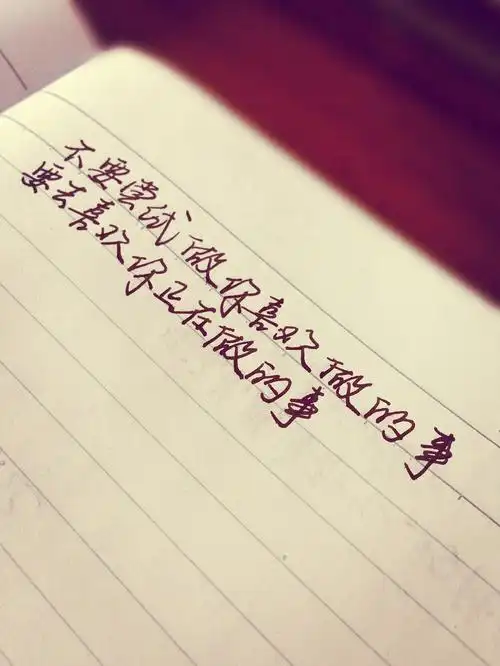 不要尝试做你喜欢做的事
要去喜欢你正在做的事